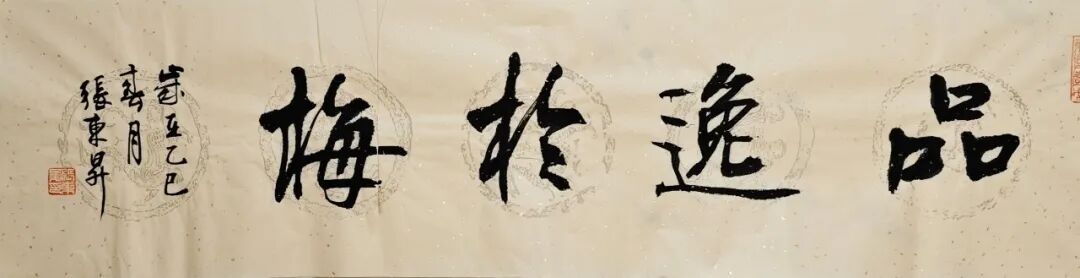 品逸於梅
歲在乙巳
春月
張東昇